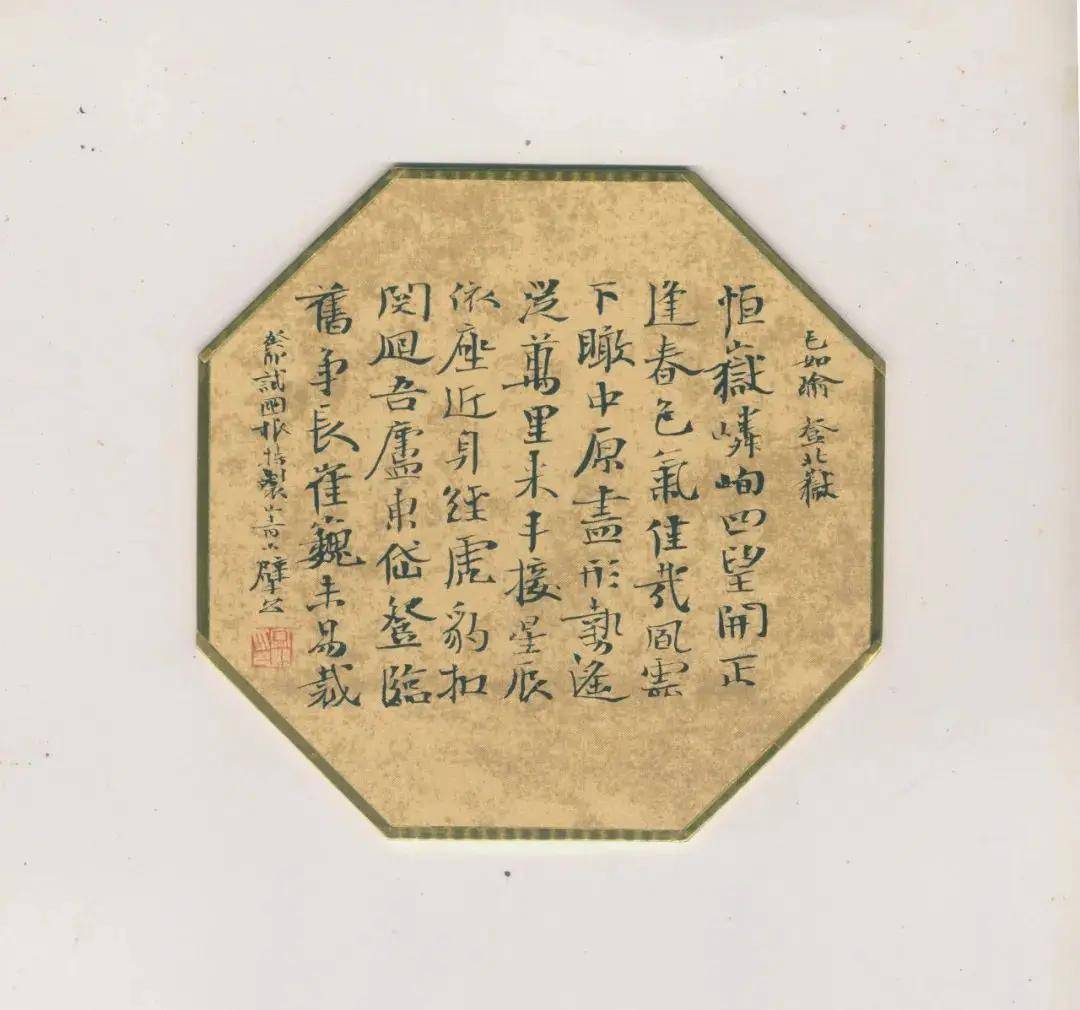 毛如瑜 登北嶽
恒嶽嶙峋四望開正
逢春色氣佳哉風雲
下瞰中原盡形勢遙
從萬里來手接星辰
依座近身經虎豹扣
関迴吾廬東岱登臨
舊爭長崔巍未易裁
癸卯試